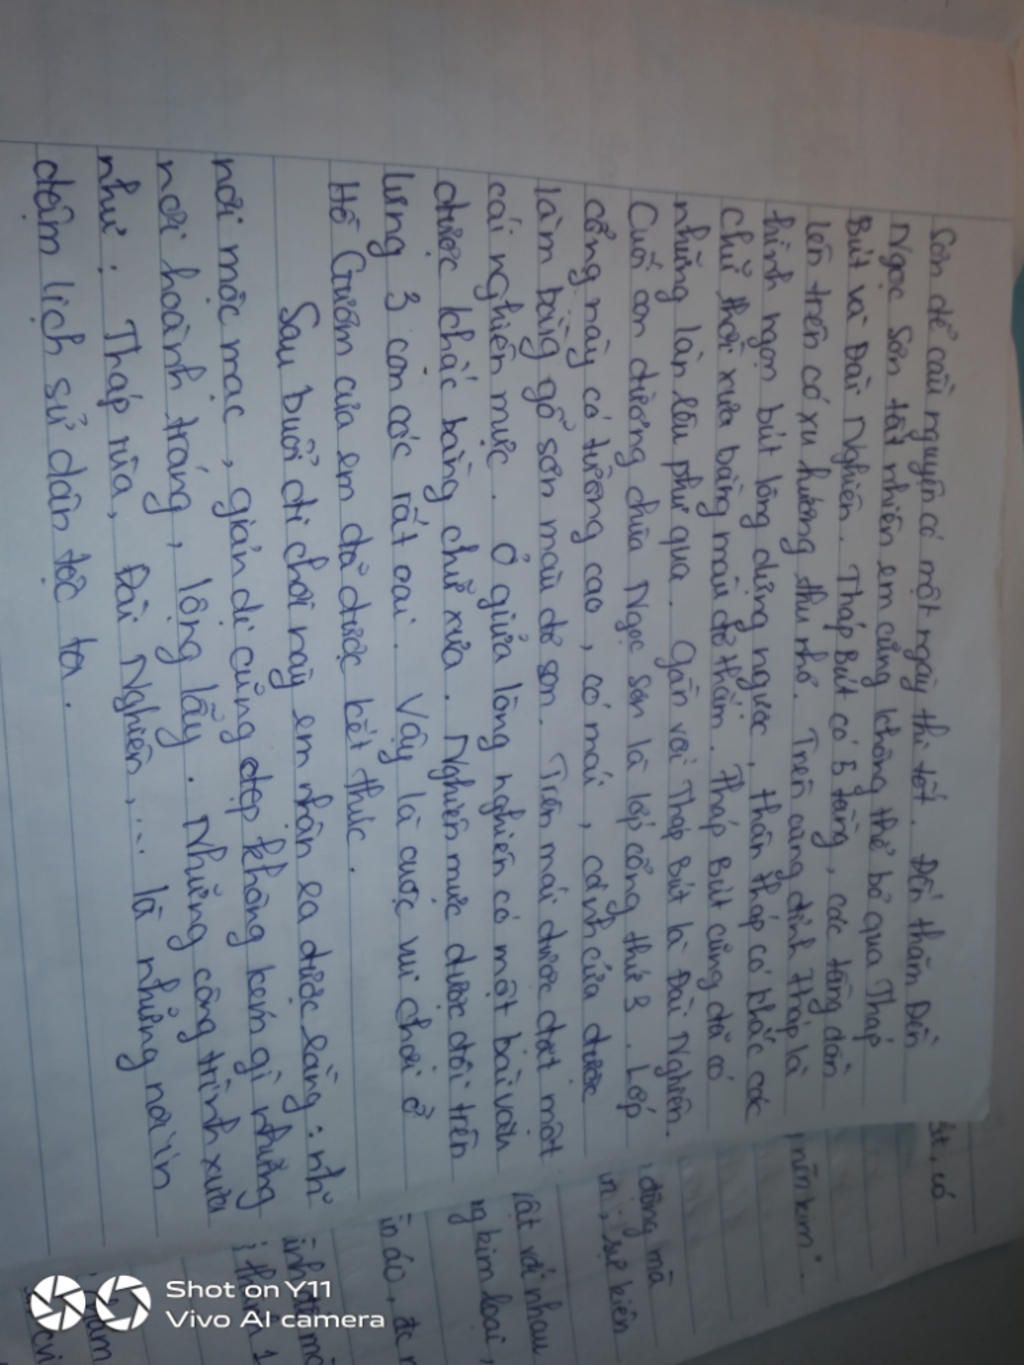 Sơn để cầu nguyện có một ngày thi tốt. Đến thăm Đền
Ngọc Sơn tất nhiên em cũng không thể bỏ qua Tháp
Bút và Đài Nghiên. Tháp Bút có 5 tầng, các tầng dần
lên trên có xu hướng thu nhỏ. Trên cùng đỉnh tháp là
hình ngọn bút lông dựng ngược, thân tháp có khắc các
chữ thời xưa bằng màu đỏ thẫm. Tháp Bút cũng đã có
những lần lâu phư qua. Gần với Tháp Bút là Đài Nghiên.
Cuối con đường chùa Ngọc Sơn là lớp cổng thứ 3. Lớp
cổng này có tường cao, có mái, cánh cửa được
làm bằng gỗ sơn màu đỏ son. Trên mái được đặt một
cái nghiên mực. Ở giữa lòng nghiên có một bài văn
được khắc bằng chữ xưa. Nghiên mực được đôi trên
lưng 3 con cóc rất oai. Vậy là cuộc vui chơi ở
Hồ Gươm của em đã được kết thúc.
Sau buổi đi chơi này em nhận ra được rằng: nh~
nơi mộc mạc, giản dị cũng đẹp không kém gì những
nơi hoành tráng, lộng lẫy. Những công trình xưa
như: Tháp rùa, Đài Nghiên,... là những nơi in
đậm lịch sử dân tộc ta.
ất, có
nến kim".
động mà
sự kiện
rật với nhau
ng kim loại,
ần áo,
Shot on Y11
Vivo AI camera